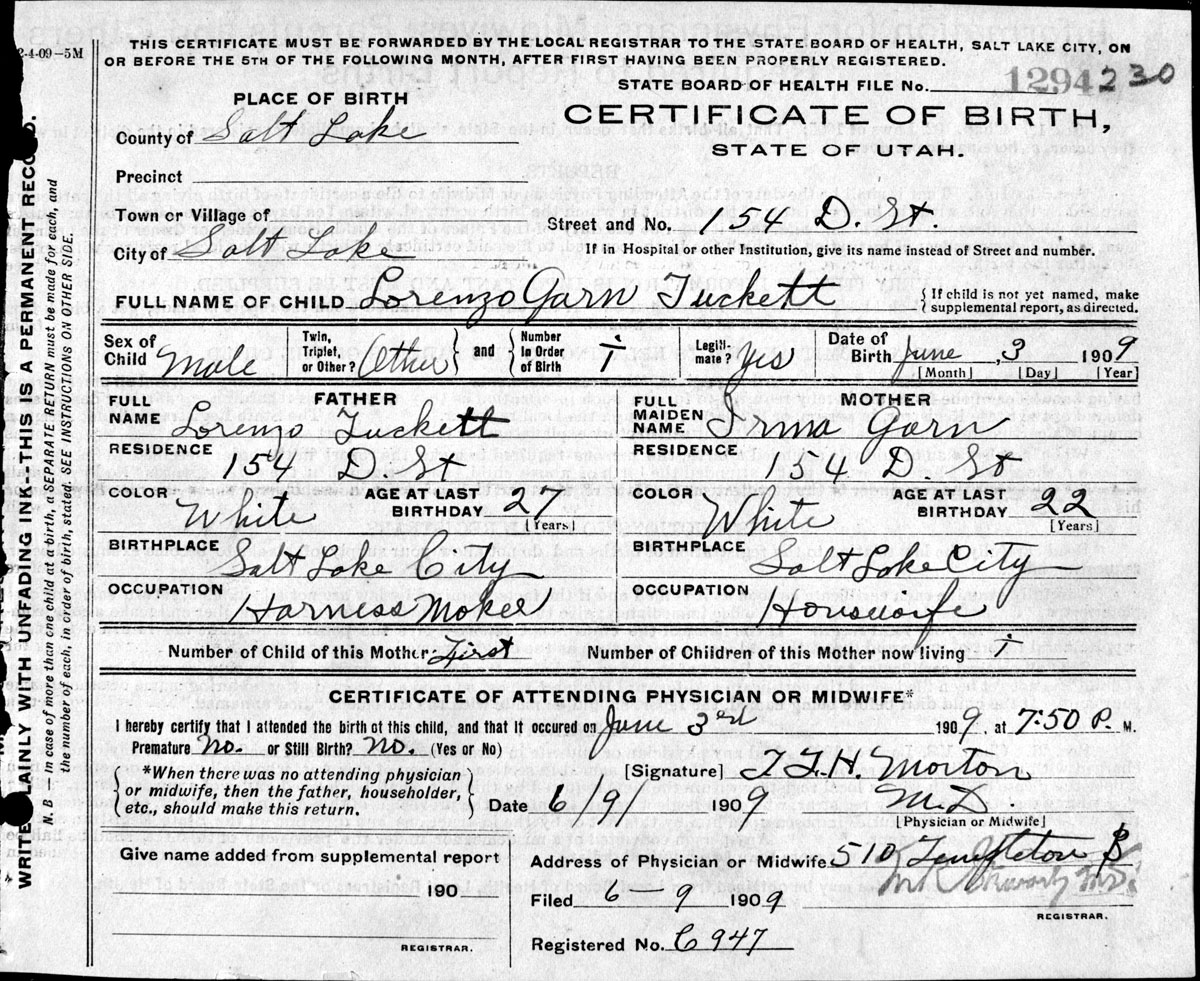 2-4-09-5M
THIS CERTIFICATE MUST BE FORWARDED BY THE LOCAL REGISTRAR TO THE STATE BOARD OF HEALTH, SALT LAKE CITY, ON
OR BEFORE THE 5TH OF THE FOLLOWING MONTH, AFTER FIRST HAVING BEEN PROPERLY REGISTERED.
STATE BOARD OF HEALTH FILE No. 1294230
PLACE OF BIRTH
CERTIFICATE OF BIRTH,
STATE OF UTAH.
County of Salt Lake
Precinct
Town or Village of
Street and No. 154 D. St.
City of Salt Lake
If in Hospital or other Institution, give its name instead of Street and number.
FULL NAME OF CHILD Lorenzo Garn Tuckett
{If child is not yet named, make
supplemental report, as directed.
Sex of Child Male
Twin, Triplet, or Other? (Other} and {Number In Order of Birth 1
Legiti- mate? Yes
Date of Birth June, 3 1909
[Month] [Day] [Year]
FATHER
FULL NAME Lorenzo Tuckett
RESIDENCE 154 D. St
COLOR White AGE AT LAST BIRTHDAY 27 [Years]
BIRTHPLACE Salt Lake City
OCCUPATION Harness Maker
MOTHER
FULL MAIDEN NAME Irma Garn
RESIDENCE 154 D. St
COLOR White AGE AT LAST BIRTHDAY 22 [Years]
BIRTHPLACE Salt Lake City
OCCUPATION Housewife
Number of Child of this Mother First Number of Children of this Mother now living 1
CERTIFICATE OF ATTENDING PHYSICIAN OR MIDWIFE*
I hereby certify that I attended the birth of this child, and that it occured on June 3rd 1909, at 7:50 P. M.
Premature No. or Still Birth? No. (Yes or No)
{*When there was no attending physician
or midwife, then the father, householder,
etc., should make this return.}
[Signature] T.F.H. Morton
Date 6/9/ 1909 M.D.
[Physician or Midwife]
Give name added from supplemental report
190
REGISTRAR.
Address of Physician or Midwife 510 Templeton B
Filed 6 9 1909
REGISTRAR.
Registered No. C 947
WRITE AINLY WITH UNFADING INK--THIS IS A PERMANENT RECO D.
N. B.--In case of more than one child at a birth, a SEPARATE RETURN must be made for each, and
the number of each, in order of birth, stated. SEE INSTRUCTIONS ON OTHER SIDE.